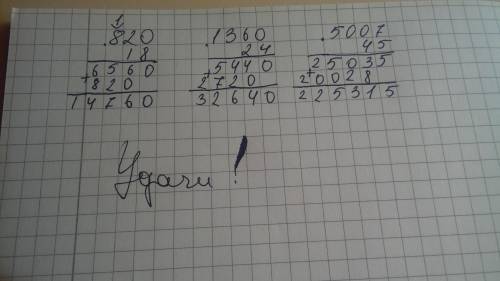 1
.820
18
6560
+820
14760
.1360
24
+5440
2720
32640
.5007
45
+25035
20028
225315
Удачи!